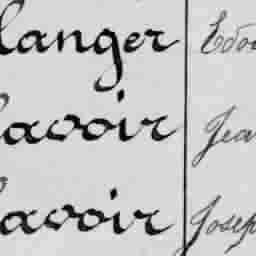 langer Edou
lavoir Jea
lavoir Josep